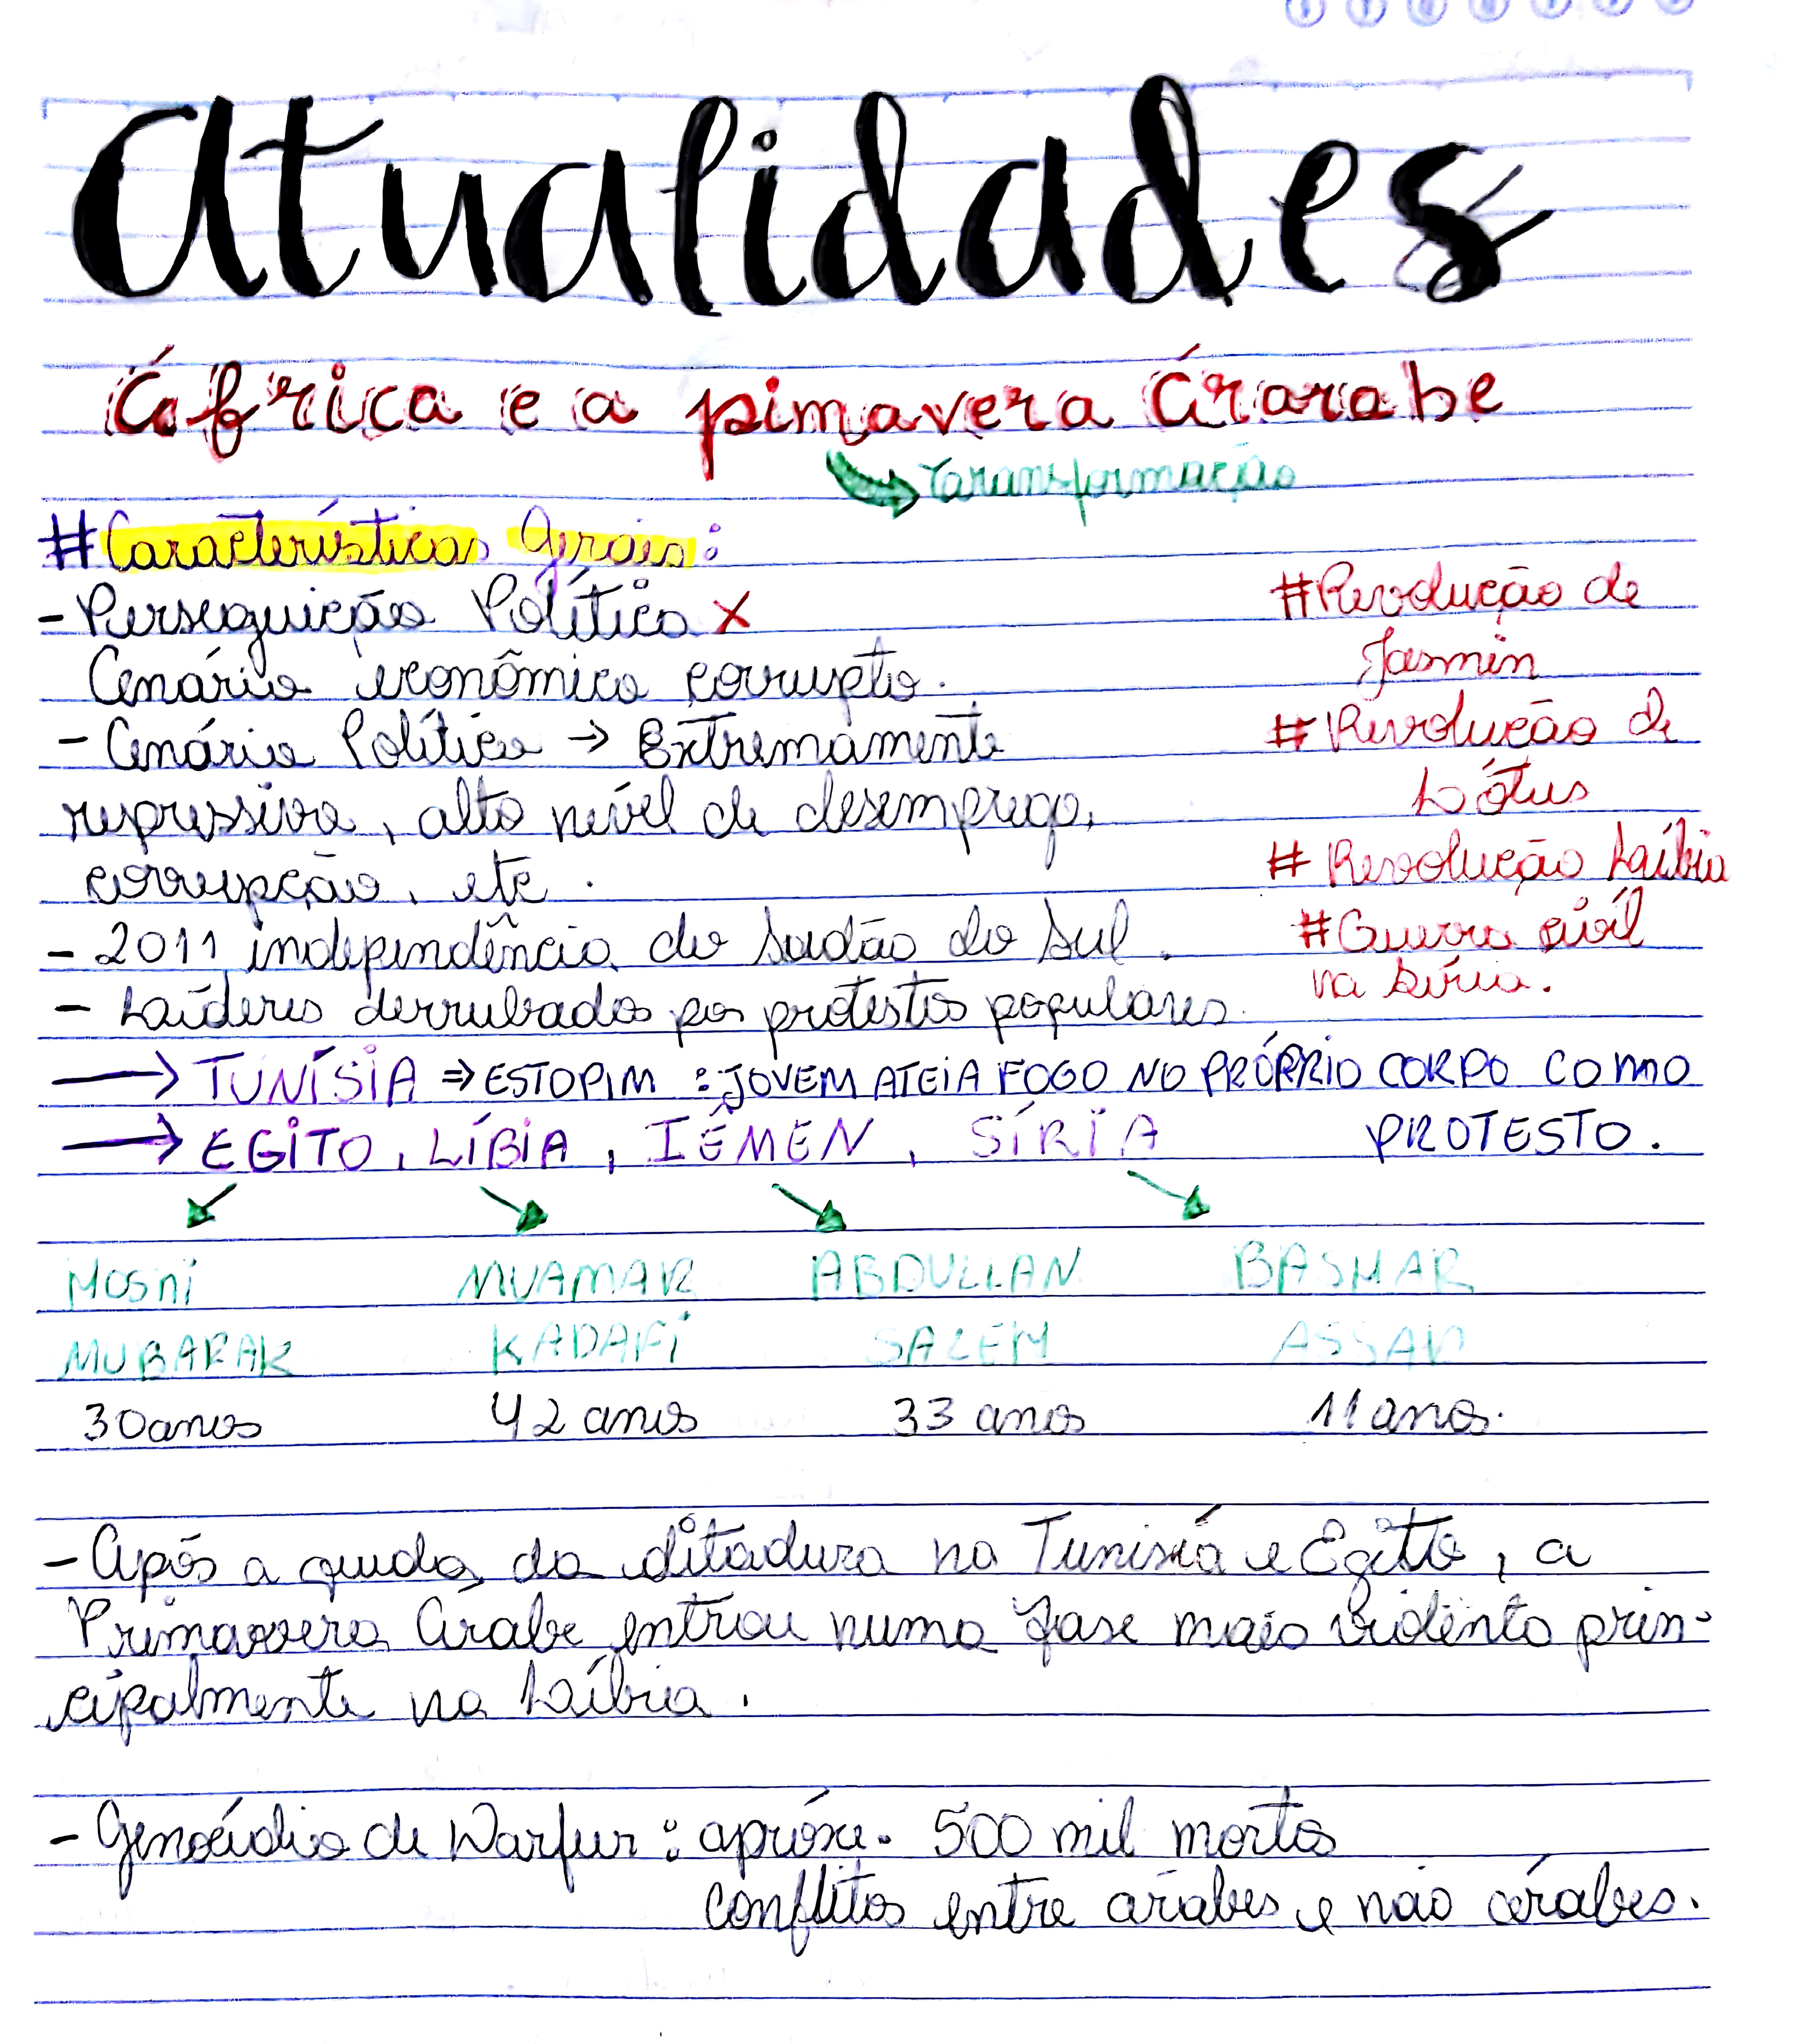 Atualidades
África e a pimavera Árarabe
Transformação
#Características Gerais:
- Perseguição Política X
Cenário econômico corrupto.
- Cenário Político → Extremamente
repressivo, alto nível de desemprego,
corrupção, etc.
- 2011 independência do Sudão do Sul.
- Líderes derrubados por protestos populares.
#Revolução de
Jasmin
#Revolução de
Lótus
#Revolução Líbia
#Guerra civil
na Síria.
→ TUNÍSIA ⇒ ESTOPIM : JOVEM ATEIA FOGO NO PRÓPRIO CORPO COMO
PROTESTO.
→ EGITO, LÍBIA, IÊMEN, SÍRIA
HOSNI MUAMAR ABDULLAN BASHAR
MUBARAK KADAFI SALEM ASSAD
30 anos 42 anos 33 anos 11 anos.
- Após a queda da ditadura na Tunísia e Egito, a
Primavera Árabe entrou numa fase mais violenta prin-
cipalmente na Líbia.
- Genocídio de Darfur : apróx. 500 mil mortos
conflitos entre árabes e não árabes.